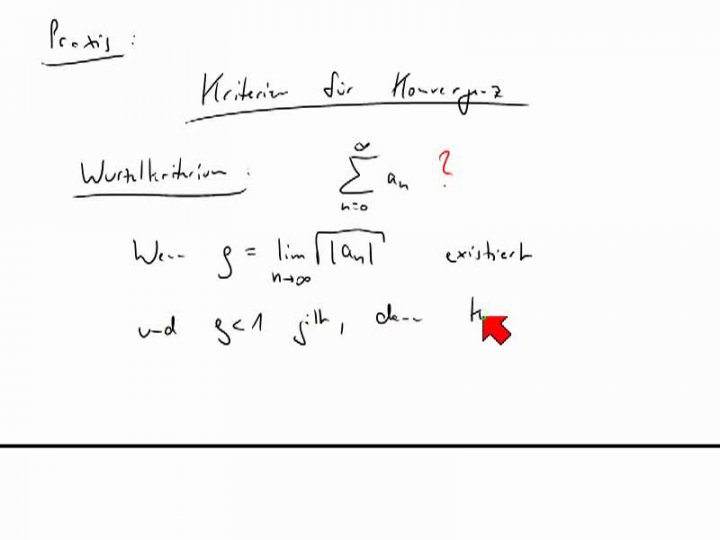 Praxis :
Kriterien für Konvergenz
Wurzelkriterium : ∑_{n=0}^{∞} a_n ?
Wenn ρ = lim_{n→∞} √|a_n| existiert
und ρ < 1 gilt, dann k